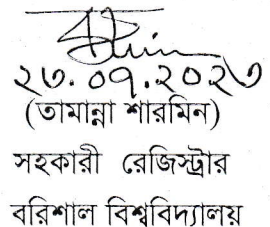 ২৩.০৭.২০২৩
(তামান্না শারমিন)
সহকারী রেজিস্ট্রার
বরিশাল বিশ্ববিদ্যালয়